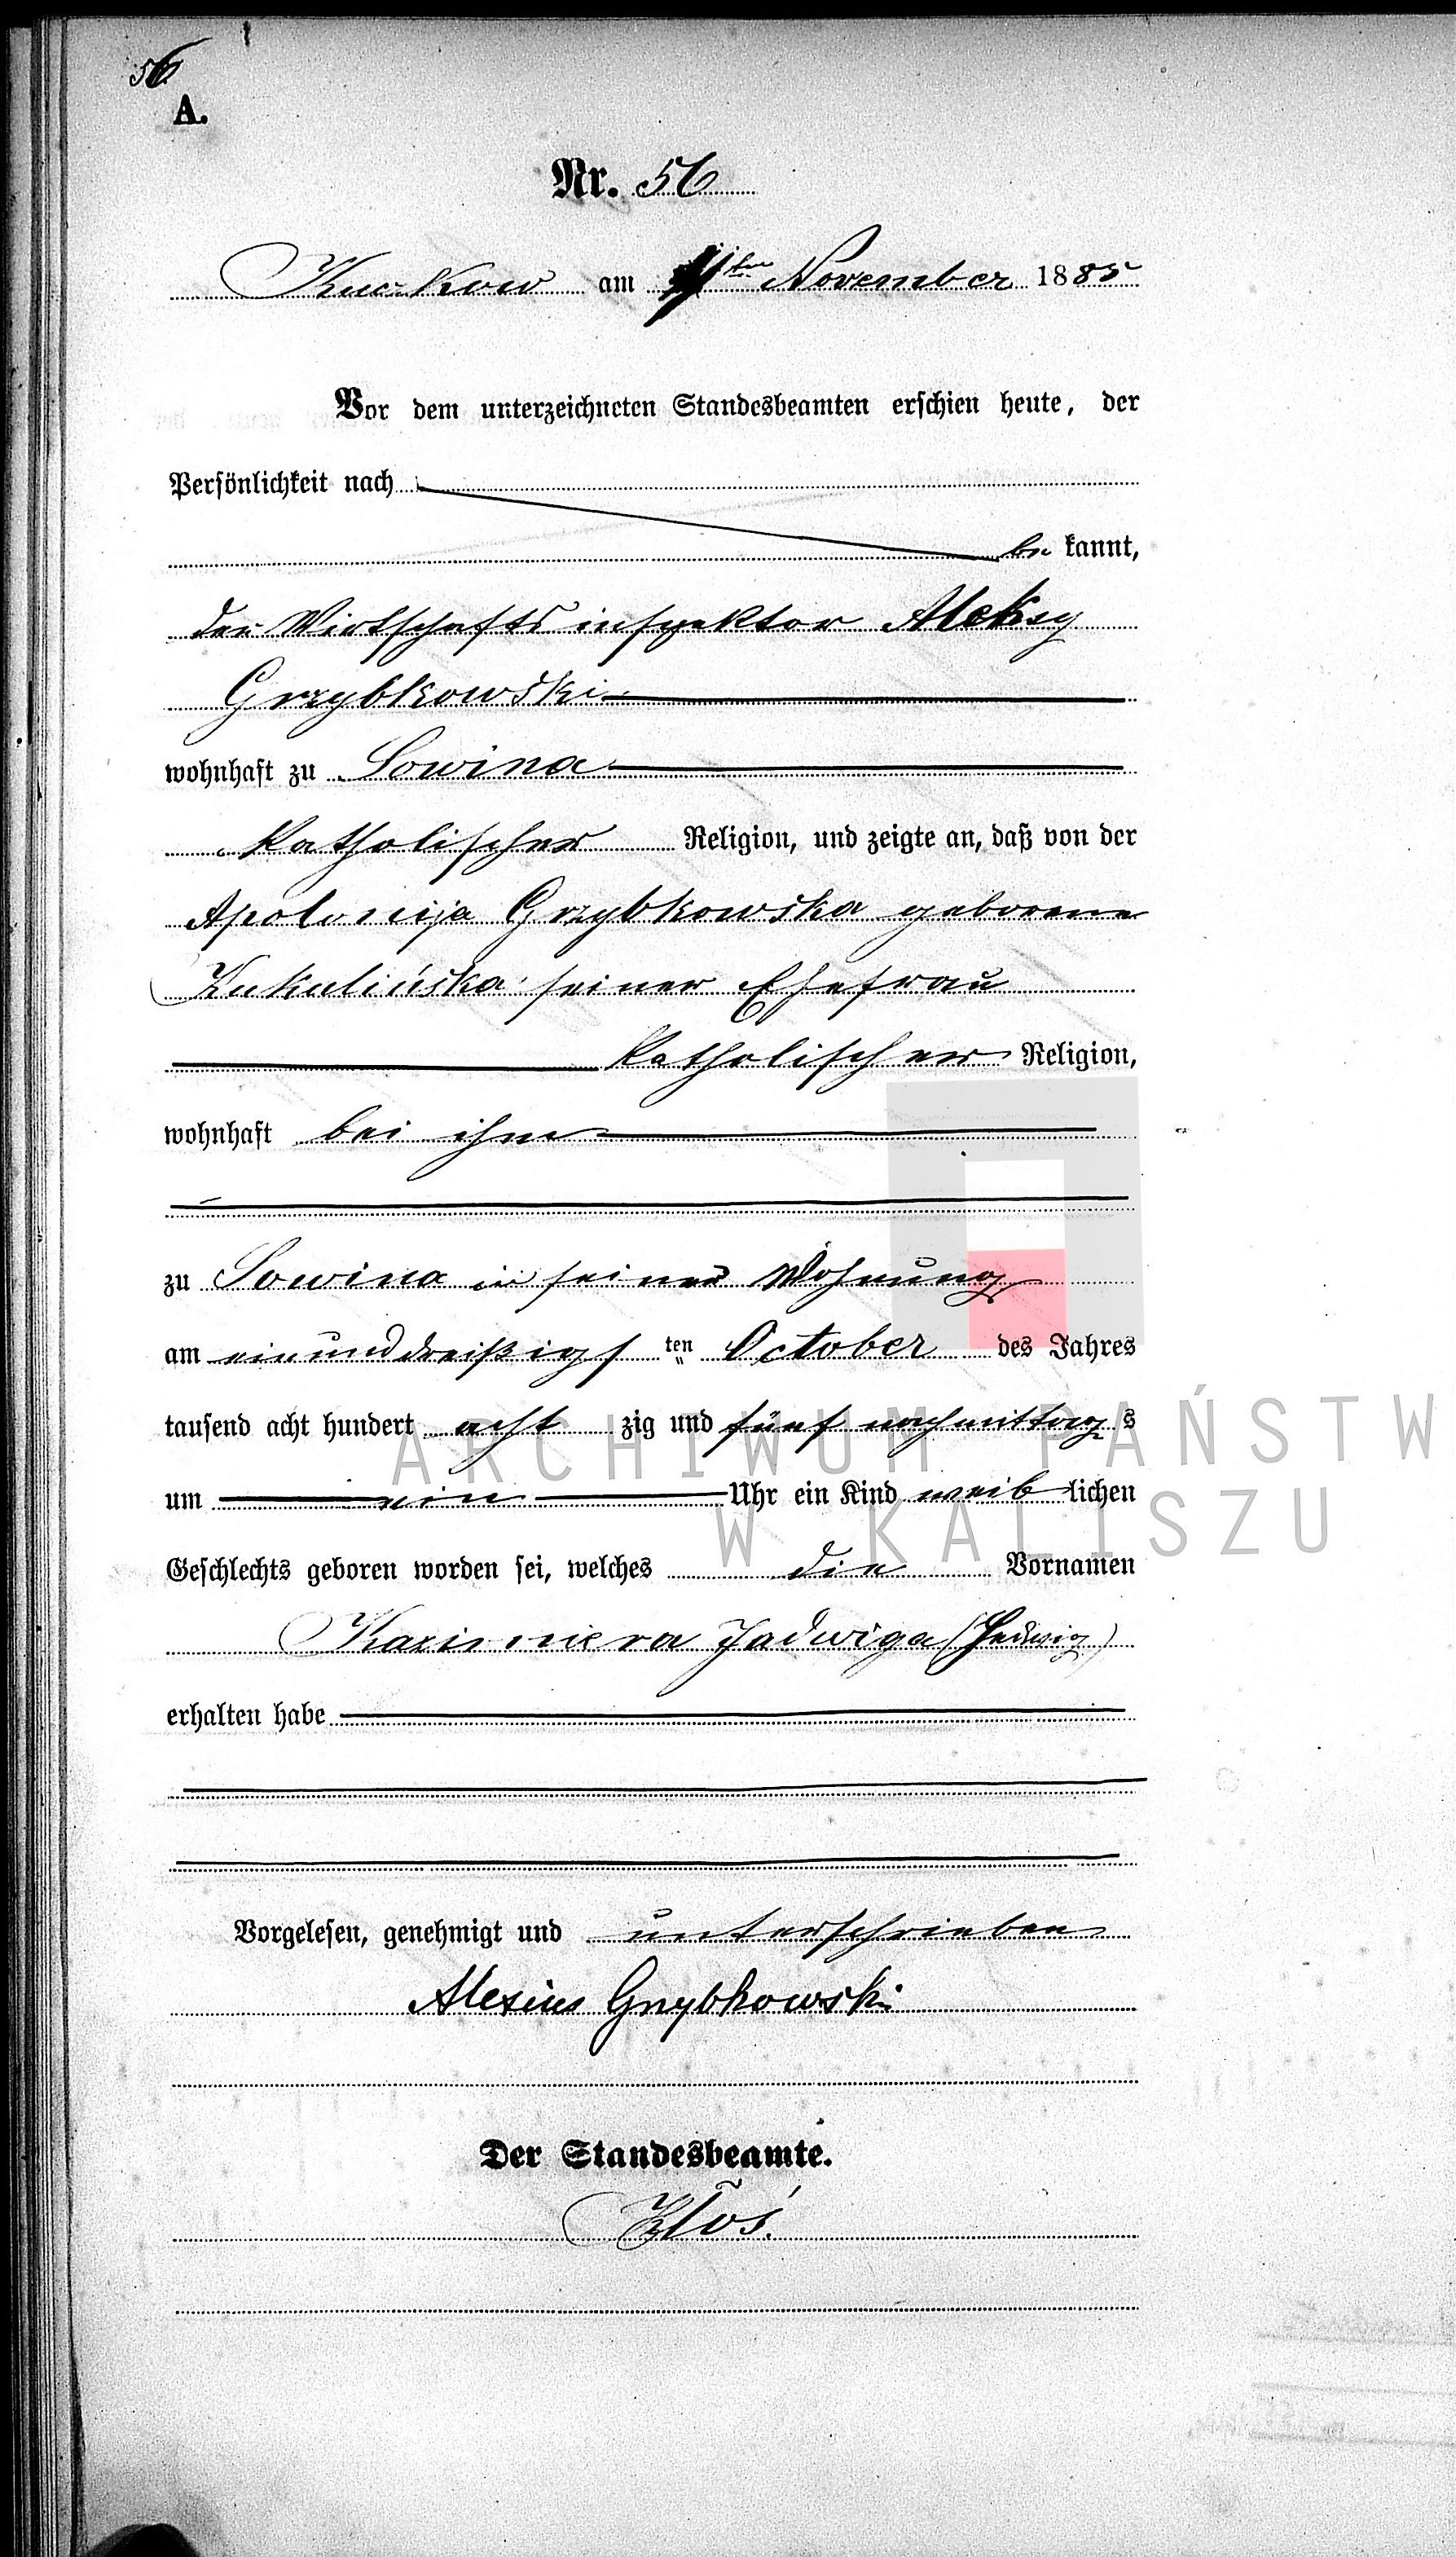 56
A.
Nr. 56
Kuczkow am ten November 1885
Vor dem unterzeichneten Standesbeamten erschien heute, der
Persönlichkeit nach
be kannt,
der Wirthschafts inspektor Aleksy
Grzybkowski
wohnhaft zu Sowina
katholischer Religion, und zeigte an, daß von der
Apolonija Grzybkowska geborene
Kukulińska seiner Ehefrau
katholischer Religion,
wohnhaft bei ihm
zu Sowina in seiner Wohnung
am einunddreißigs ten October des Jahres
tausend acht hundert acht zig und fünf nachmittag s
um ein Uhr ein Kind weib lichen
Geschlechts geboren worden sei, welches die Vornamen
Kazimiera Jadwiga (Hedwig)
erhalten habe
Vorgelesen, genehmigt und unterschrieben
Alexius Grzybkowski
Der Standesbeamte.
Kloś.
ARCHIWUM PAŃSTW
W KALISZU